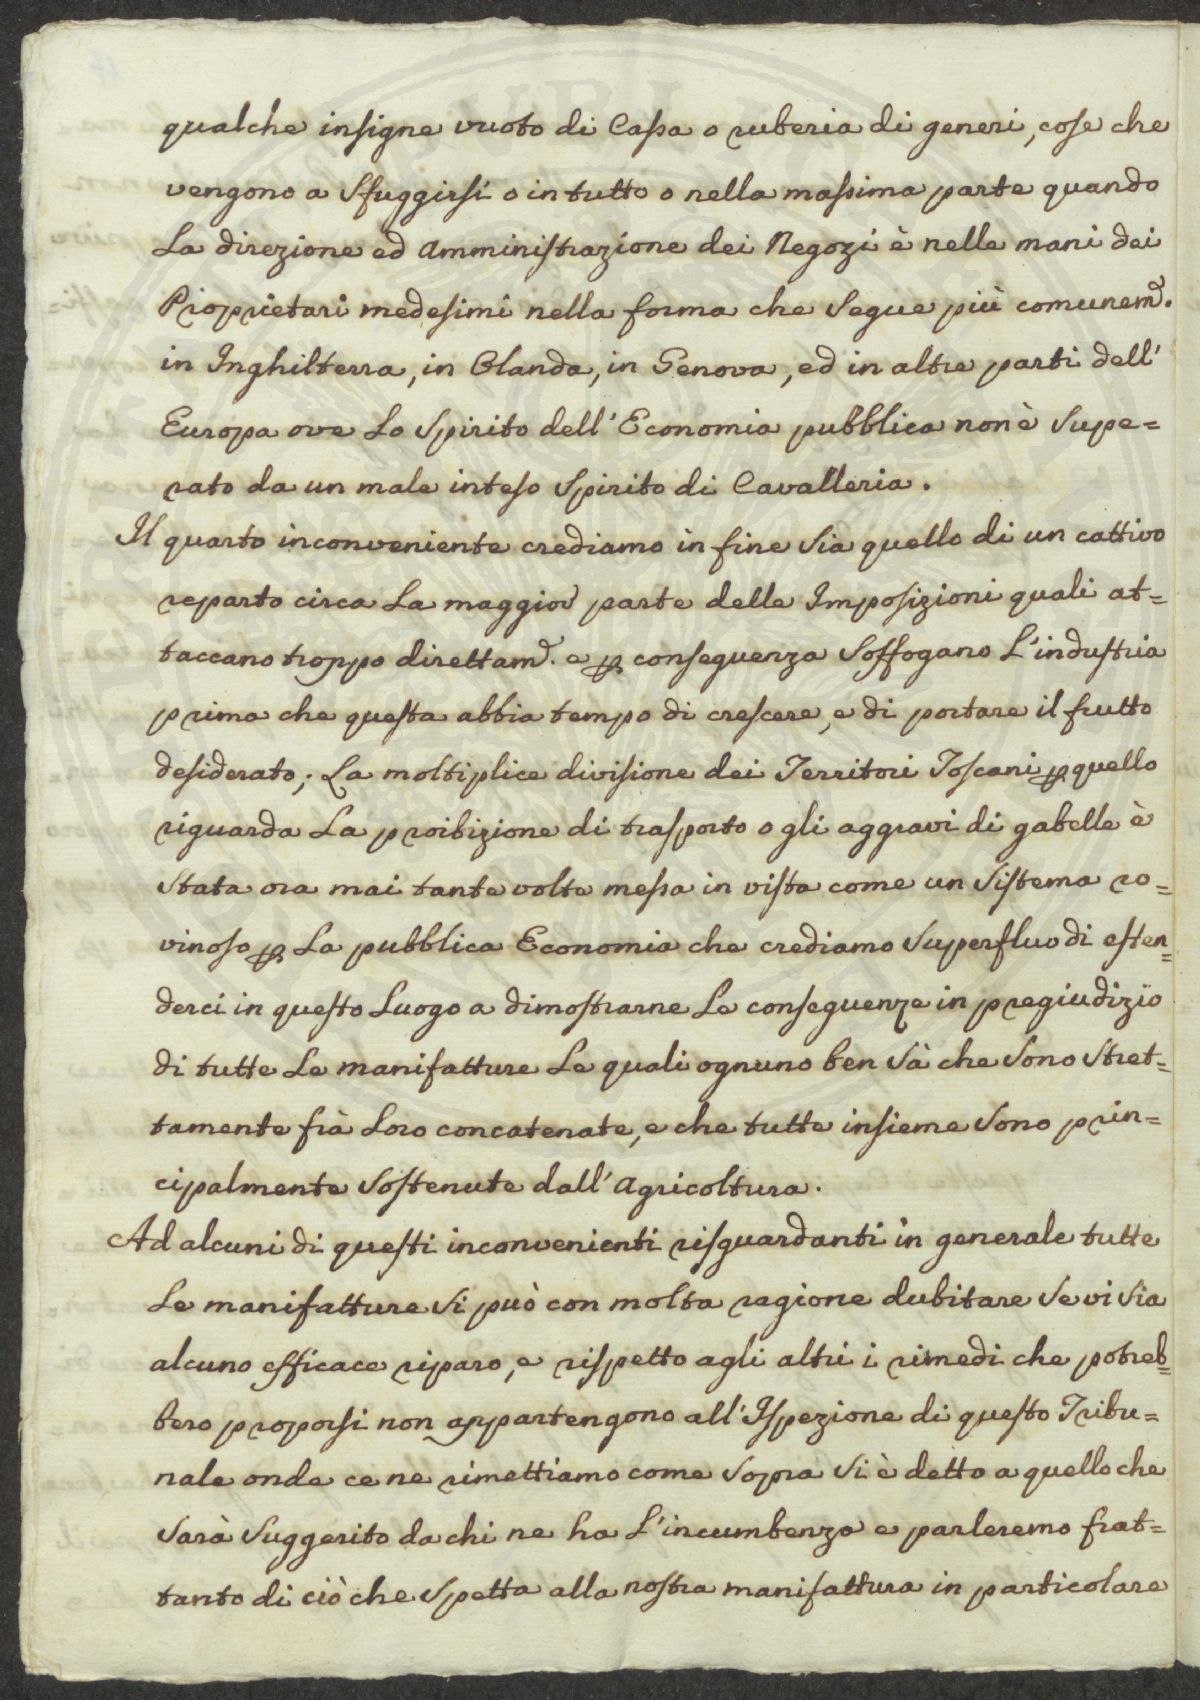 qualche insigne vuoto di Cassa o ruberia di generi, cose che
vengono a sfuggirsi o in tutto o nella massima parte quando
La direzione ed Amministrazione dei Negozi è nelle mani dei
Proprietari medesimi nella forma che segue più comunem.
in Inghilterra, in Olanda, in Genova, ed in altre parti dell'
Europa ove Lo Spirito dell'Economia pubblica non è Supe=
rato da un male inteso Spirito di Cavalleria.
Il quarto inconveniente crediamo in fine Sia quello di un cattivo
reparto circa La maggior parte delle Imposizioni quali at=
taccano troppo direttam. e p conseguenza Soffogano L'industria
prima che questa abbia tempo di crescere, e di portare il frutto
desiderato; La moltiplice divisione dei Territori Toscani p quello
riguarda La proibizione di trasporto o gli aggravi di gabelle è
Stata ora mai tante volte messa in vista come un Sistema ro=
vinoso p La pubblica Economia che crediamo Superfluo di esten=
derci in questo Luogo a dimostrarne Le conseguenze in pregiudizio
di tutte Le manifatture Le quali ognuno ben Sà che Sono Stret=
tamente frà Loro concatenate, e che tutte insieme Sono prin=
cipalmente Sostenute dall'Agricoltura.
Ad alcuni di questi inconvenienti risguardanti in generale tutte
Le manifatture Si può con molta ragione dubitare Se vi Sia
alcuno efficace riparo, e rispetto agli altri i rimedi che potreb=
bero proporsi non appartengono all'Ispezione di questo Tribu=
nale onde ce ne rimettiamo come Sopra Si è detto a quello che
Sarà Suggerito da chi ne ha L'incumbenza e parleremo frat=
tanto di ciò che Spetta alla nostra manifattura in particolare